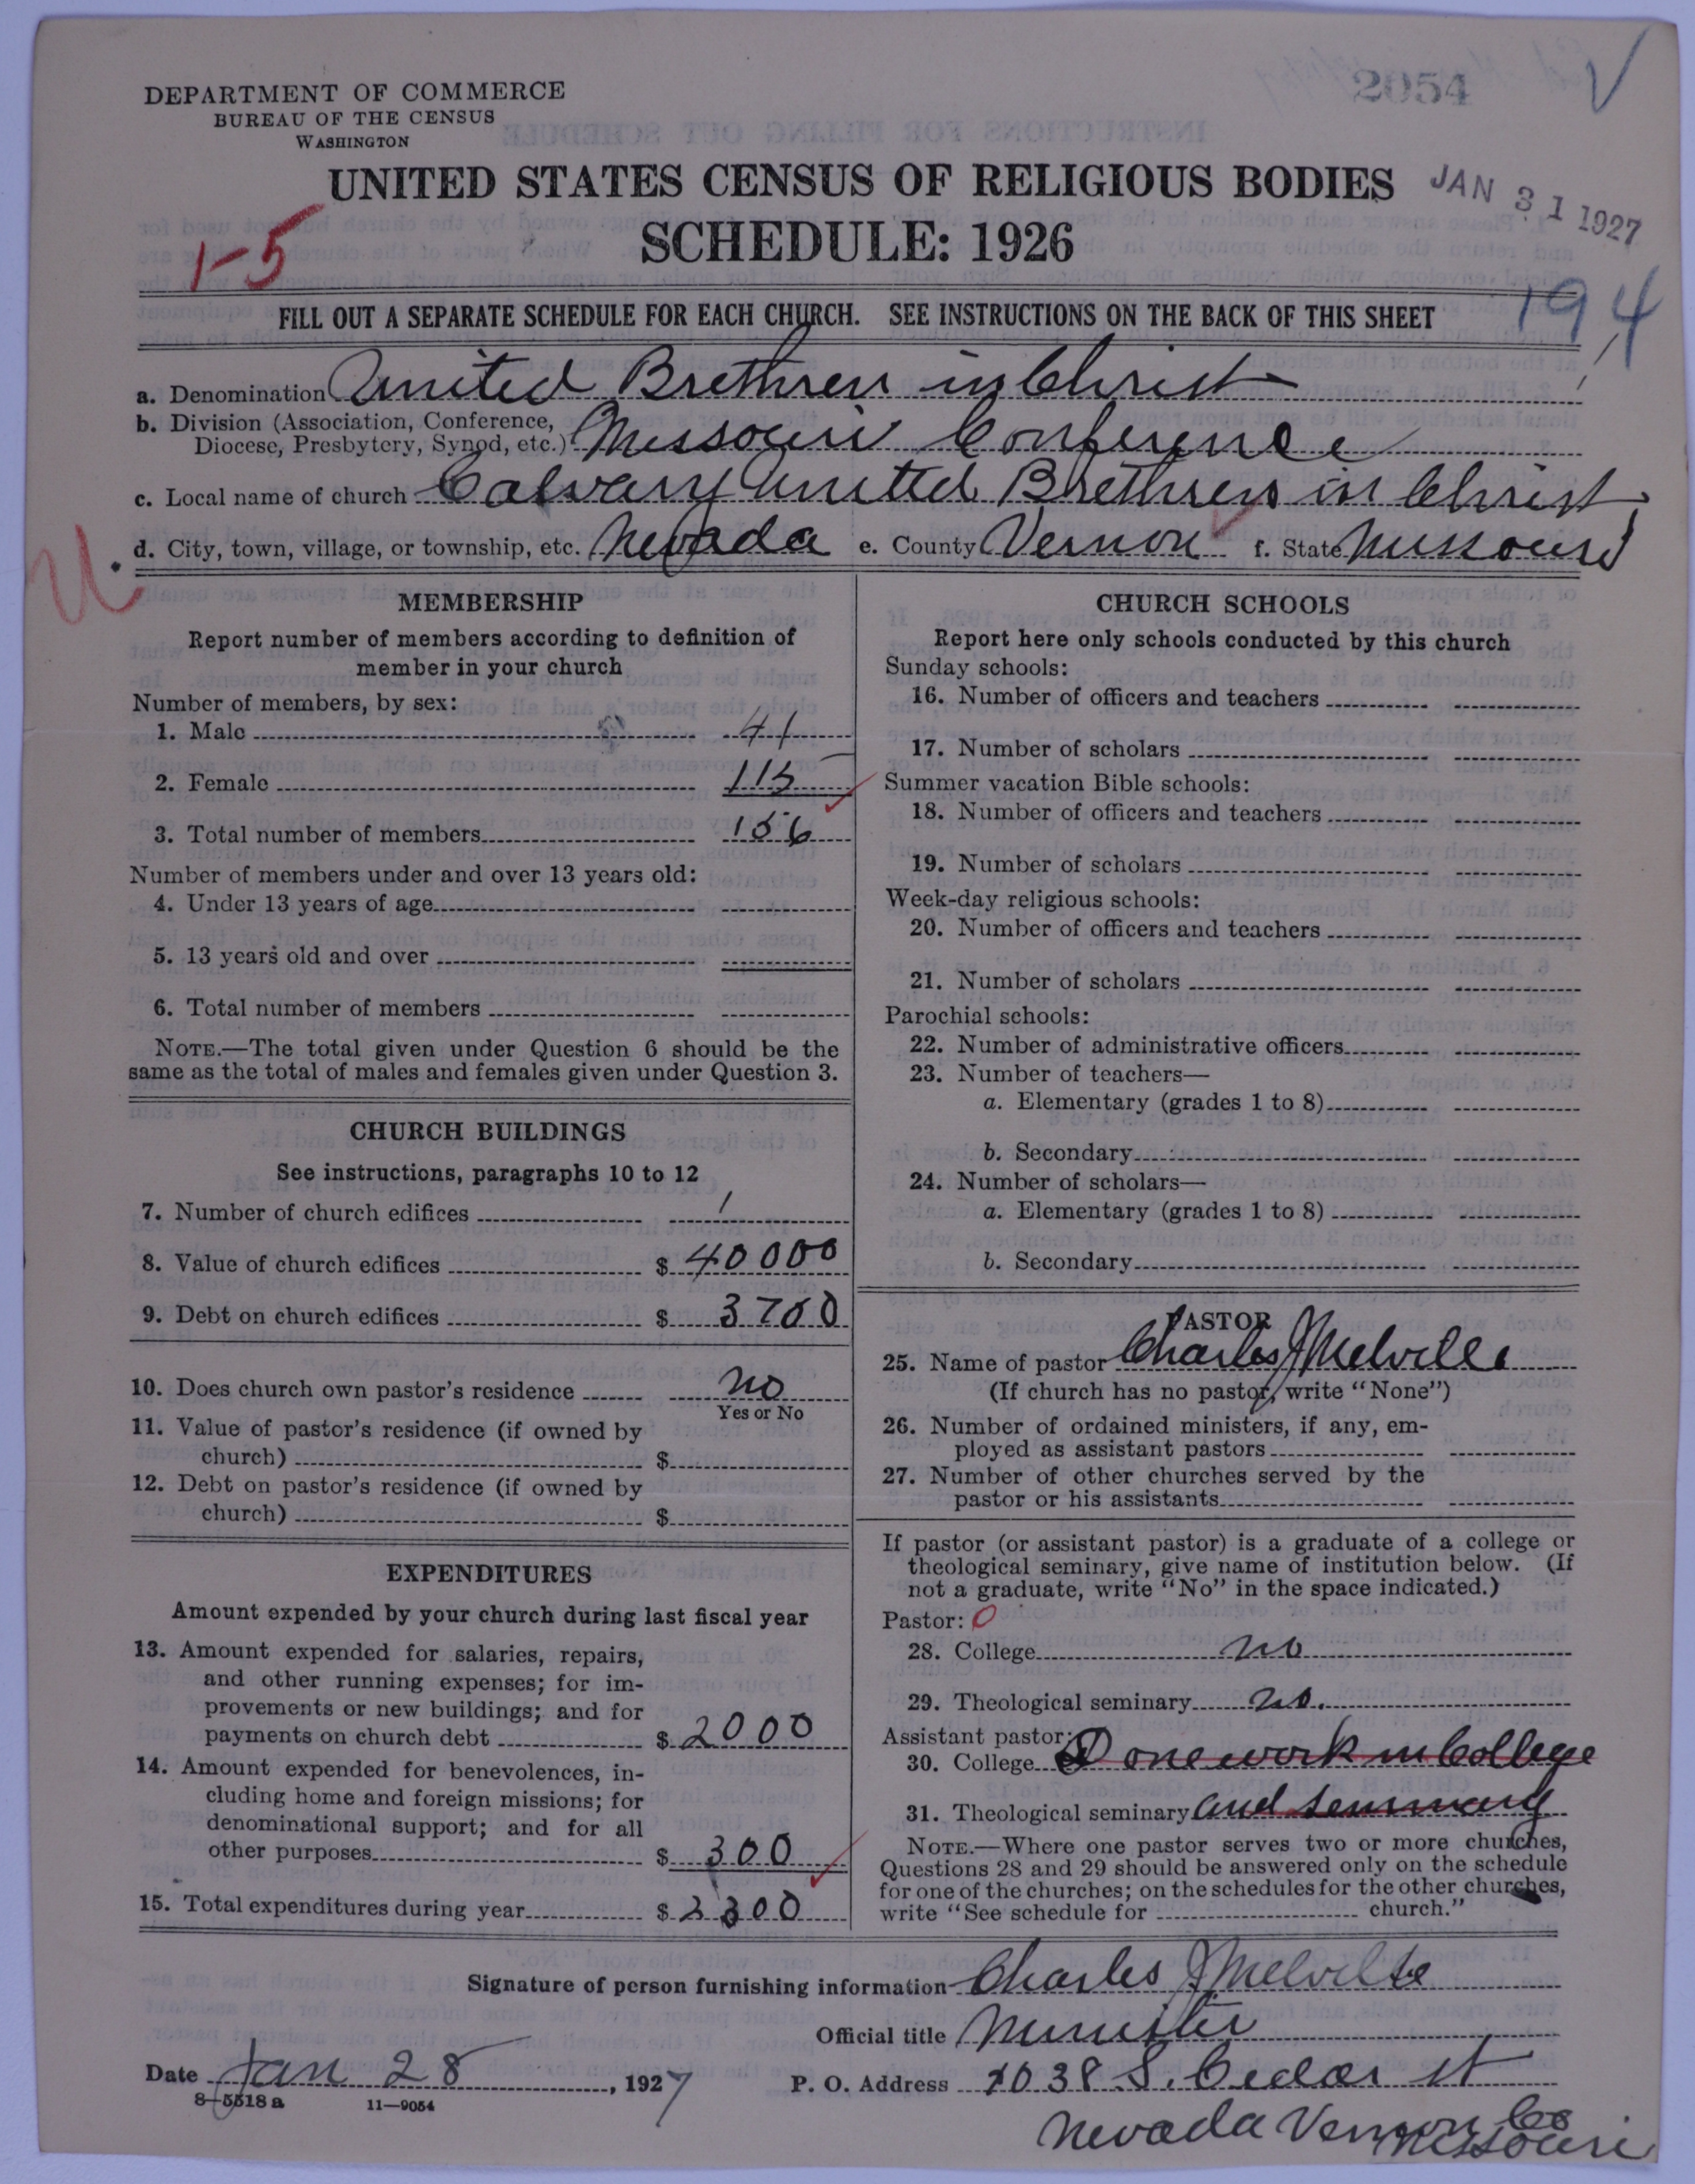 DEPARTMENT OF COMMERCE
BUREAU OF THE CENSUS
WASHINGTON
2054
UNITED STATES CENSUS OF RELIGIOUS BODIES
JAN 31 1927
SCHEDULE: 1926
1-5
194
FILL OUT A SEPARATE SCHEDULE FOR EACH CHURCH. SEE INSTRUCTIONS ON THE BACK OF THIS SHEET
a. Denomination United Brethren in Christ
b. Division (Association, Conference,
Diocese, Presbytery, Synod, etc.) Missouri Conference
c. Local name of church Calvary United Brethren in Christ
d. City, town, village, or township, etc. Nevada e. County Vernon f. State Missouri
U
MEMBERSHIP
Report number of members according to definition of
member in your church
Number of members, by sex:
1. Male 41
2. Female 115
3. Total number of members 156
Number of members under and over 13 years old:
4. Under 13 years of age
5. 13 years old and over
6. Total number of members
NOTE.—The total given under Question 6 should be the
same as the total of males and females given under Question 3.
CHURCH BUILDINGS
See instructions, paragraphs 10 to 12
7. Number of church edifices 1
8. Value of church edifices $ 40000
9. Debt on church edifices $ 3700
10. Does church own pastor's residence no
Yes or No
11. Value of pastor's residence (if owned by
church) $
12. Debt on pastor's residence (if owned by
church) $
EXPENDITURES
Amount expended by your church during last fiscal year
13. Amount expended for salaries, repairs,
and other running expenses; for im-
provements or new buildings; and for
payments on church debt $ 2000
14. Amount expended for benevolences, in-
cluding home and foreign missions; for
denominational support; and for all
other purposes $ 300
15. Total expenditures during year $ 2300
CHURCH SCHOOLS
Report here only schools conducted by this church
Sunday schools:
16. Number of officers and teachers
17. Number of scholars
Summer vacation Bible schools:
18. Number of officers and teachers
19. Number of scholars
Week-day religious schools:
20. Number of officers and teachers
21. Number of scholars
Parochial schools:
22. Number of administrative officers
23. Number of teachers—
a. Elementary (grades 1 to 8)
b. Secondary
24. Number of scholars—
a. Elementary (grades 1 to 8)
b. Secondary
PASTOR
25. Name of pastor Charles J Melville
(If church has no pastor, write "None")
26. Number of ordained ministers, if any, em-
ployed as assistant pastors
27. Number of other churches served by the
pastor or his assistants
If pastor (or assistant pastor) is a graduate of a college or
theological seminary, give name of institution below. (If
not a graduate, write "No" in the space indicated.)
Pastor: 0
28. College no
29. Theological seminary no.
Assistant pastor:
30. College Done work in College
31. Theological seminary and Seminary
NOTE.—Where one pastor serves two or more churches,
Questions 28 and 29 should be answered only on the schedule
for one of the churches; on the schedules for the other churches,
write "See schedule for church."
Signature of person furnishing information Charles J Melville
Official title Minister
Date Jan 28, 1927 P. O. Address 1038 S. Cedar st
8-5518 a 11-9054
Nevada Vernon Co
Missouri